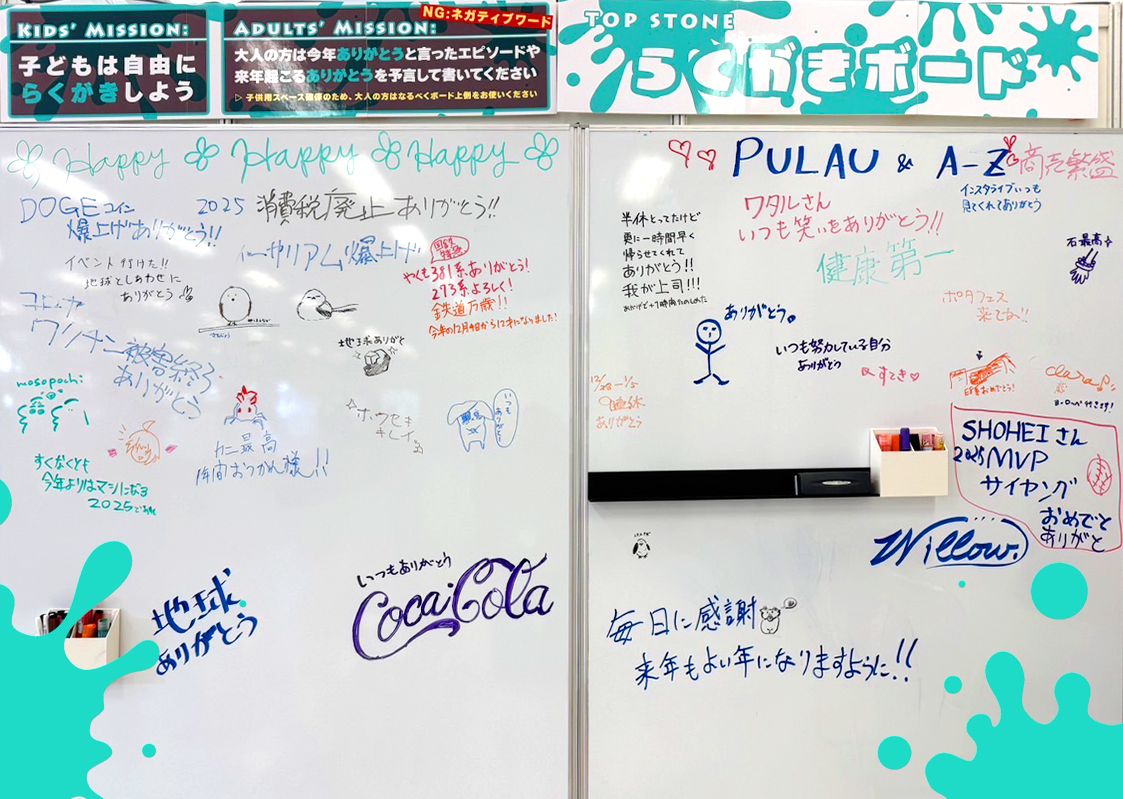 KIDS' MISSION:
子どもは自由に
らくがきしよう
ADULTS' MISSION:
NG:ネガティブワード
大人の方は今年ありがとうと言ったエピソードや
来年起こるありがとうを予言して書いてください
▷ 子供用スペース確保のため、大人の方はなるべくボード上側をお使いください
TOP STONE
らくがきボード
Happy Happy Happy
DOGEコイン
爆上げありがとう!!
2025 消費税廃止ありがとう!!
イーサリアム爆上げ
イベント行けた!!
地球としあわせに
ありがとう
国鉄
特急
やくも381系ありがとう!
273系よろしく!
鉄道万歳!!
今年の12月4日から12才になりました!
ワクチン被害
ありがとう
地球ありがと
mosopochi
ホウセキ
キレイ
いつも
ありがとう
カニ最高
年間おつかれ様!!
すくなくとも
今年よりはマシになる
2025であれ
地球
ありがとう
いつもありがとう
Coca-Cola
PULAU & A-Z
商売繁盛
インスタライブいつも
見てくれてありがとう
半休とってたけど
更に一時間早く
帰らせてくれて
ありがとう!!
我が上司!!!
ワタルさん
いつも笑いをありがとう!!
健康第一
石最高
ポタフェス
来てねっ!!
ありがとう。
いつも努力している自分
ありがとう
すてき
12/28〜1/5
9連休
ありがとう
おめでとう!
clara
SHOHEIさん
2025 MVP
サイヤング
おめでと
ありがと
Willow.
毎日に感謝
来年もよい年になりますように!!